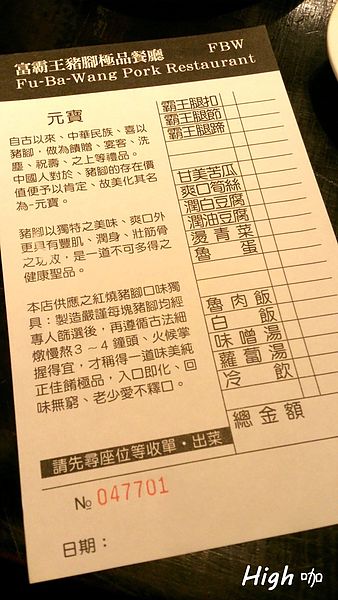 富霸王豬腳極品餐廳 FBW
Fu-Ba-Wang Pork Restaurant
元寶
自古以來、中華民族、喜以
豬腳,做為饋贈、宴客、洗
塵、祝壽、之上等禮品。
中國人對於、豬腳的存在價
值便予以肯定、故美化其名
為-元寶.
豬腳以獨特之美味、爽口外
更具有豐肌、潤身、壯筋骨
之功效,是一道不可多得之
健康聖品。
本店供應之紅燒豬腳口味獨
具:製造嚴謹每塊豬腳均經
專人篩選後,再遵循古法細
燉慢熬3~4鐘頭、火候掌
握得宜,才稱得一道味美純
正佳餚極品,入口即化、回
味無窮、老少愛不釋口。
霸王腿扣
霸王腿節
霸王腿蹄
甘美苦瓜
爽口筍絲
潤白豆腐
潤油豆腐
燙青菜
魯蛋
魯肉飯
白飯
味噌湯
蘿蔔湯
冷飲
總金額
請先尋座位等收單・出菜
№ 047701
日期:
High 咖